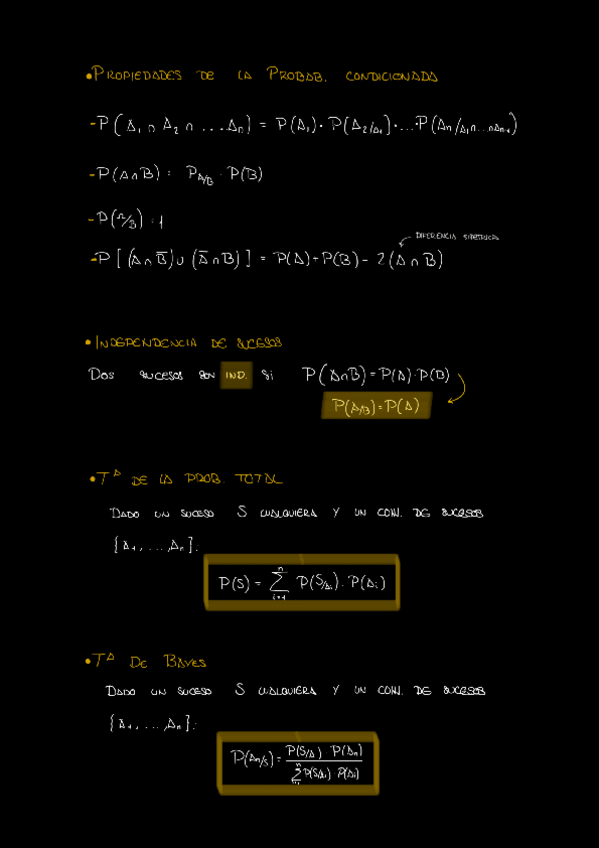 • PROPIEDADES DE LA PROBAB. CONDICIONADA
- P(A₁ ∩ A₂ ∩ ... Aₙ) = P(A₁) · P(A₂/A₁) · ... · P(Aₙ/A₁∩...∩Aₙ₋₁)
- P(A∩B) = P A/B · P(B)
- P(Ω/B) = 1
DIFERENCIA SIMÉTRICA
- P[(A∩B̅)∪(A̅∩B)] = P(A)+P(B) - 2(A∩B)
• INDEPENDENCIA DE SUCESOS
DOS SUCESOS SON IND. SI P(A∩B) = P(A)·P(B)
P(A/B) = P(A)
• Tᵃ DE LA PROB. TOTAL
DADO UN SUCESO S CUALQUIERA Y UN CONJ. DE SUCESOS
{A₁, ..., Aₙ}:
P(S) = ∑ⁿᵢ₌₁ P(S/Aᵢ) · P(Aᵢ)
• Tᵃ DE BAYES
DADO UN SUCESO S CUALQUIERA Y UN CONJ. DE SUCESOS
{A₁, ..., Aₙ}:
P(Aₙ/S) = P(S/A) · P(Aₙ) / ∑ⁿᵢ₌₁ P(S/Aᵢ) · P(Aᵢ)